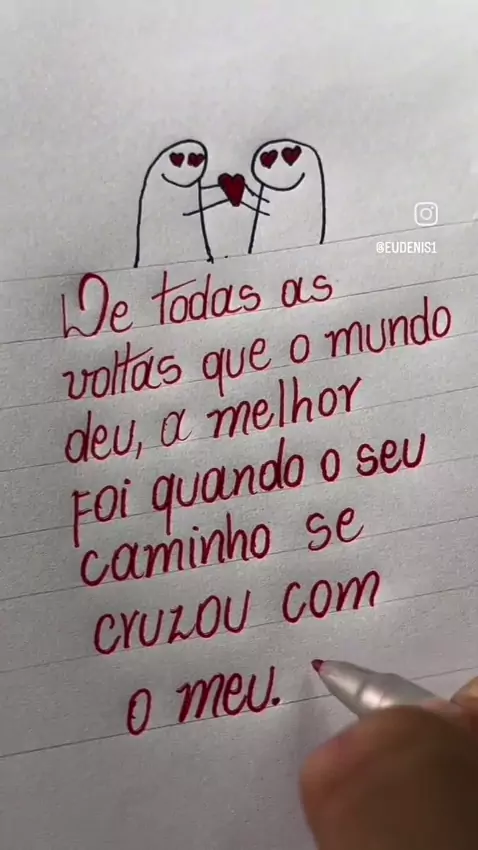 @EUDENIS1
De todas as
voltas que o mundo
deu, a melhor
Foi quando o seu
caminho se
cruzou com
o meu.